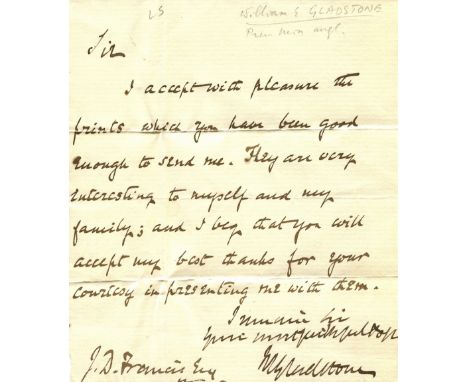 LS
William E GLADSTONE
Prem min angl.
Sir
I accept with pleasure the
prints which you have been good
enough to send me. They are very
interesting to myself and my
family; and I beg that you will
accept my best thanks for your
courtesy in presenting me with them.
I remain Sir
your most faithful
WEGladstone
J. D. Francis Esq